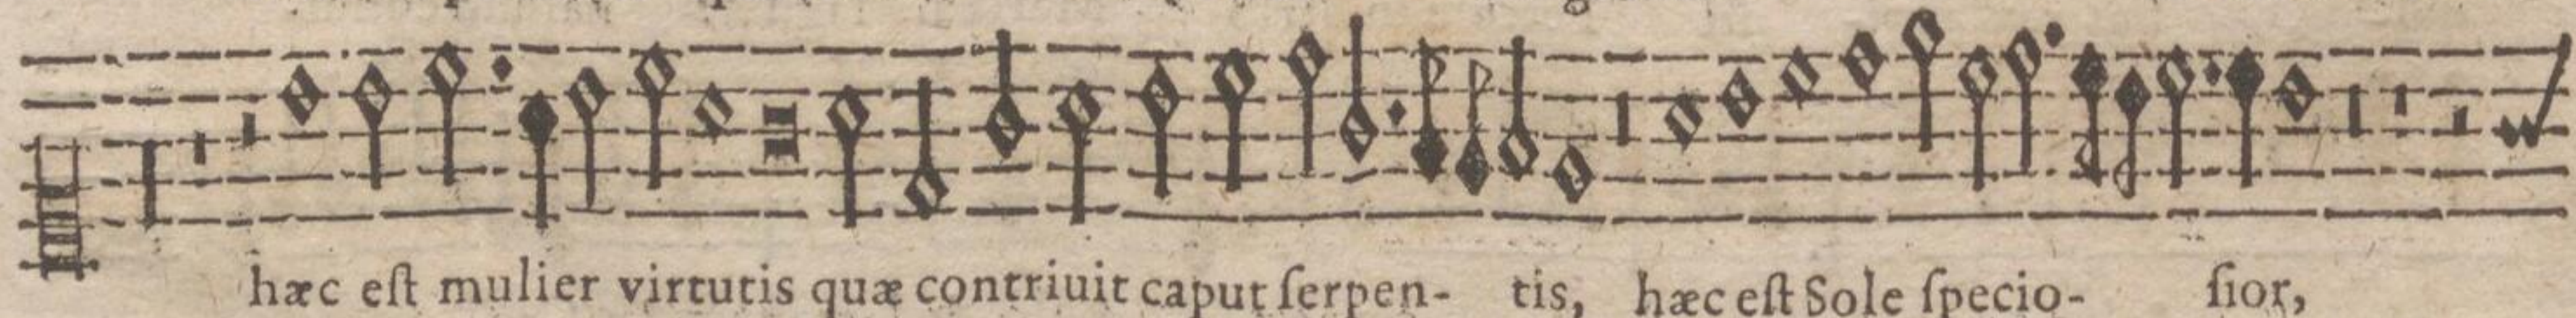 hæc eſt mulier virtutis quæ contriuit caput ſerpen- tis, hæc eſt Sole ſpecio- ſior,